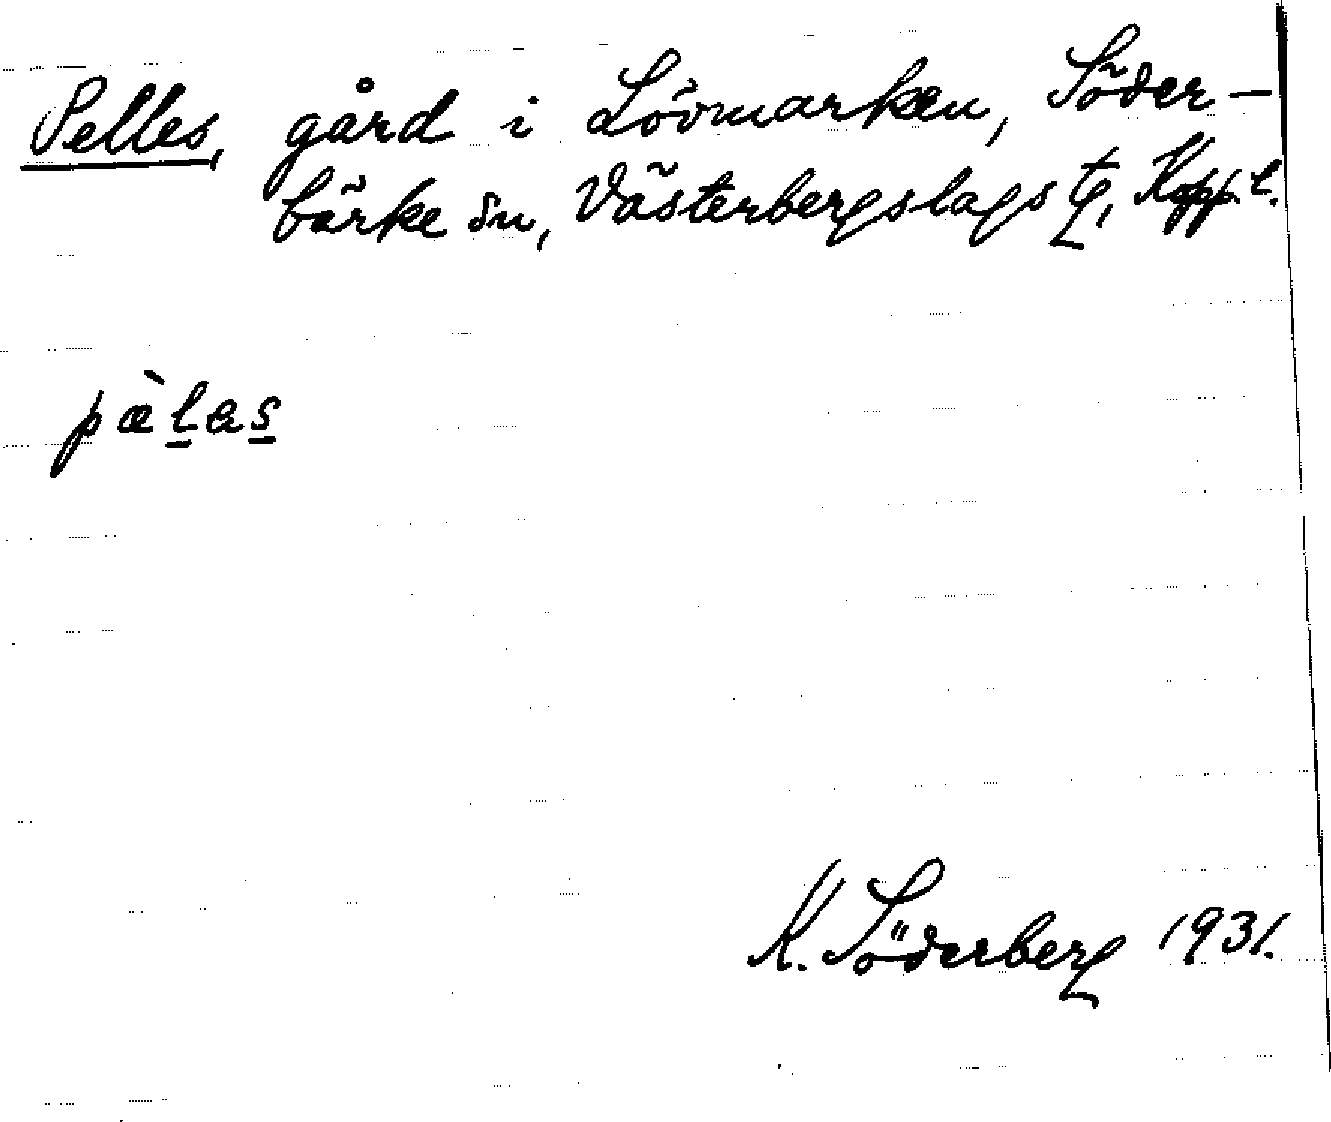 Pelles, gård i Lövmarken, Söder-
bärke sn, Västerbergslags tg, Kopp. l.
pæ̀l̲as̲
K. Söderberg 1931.